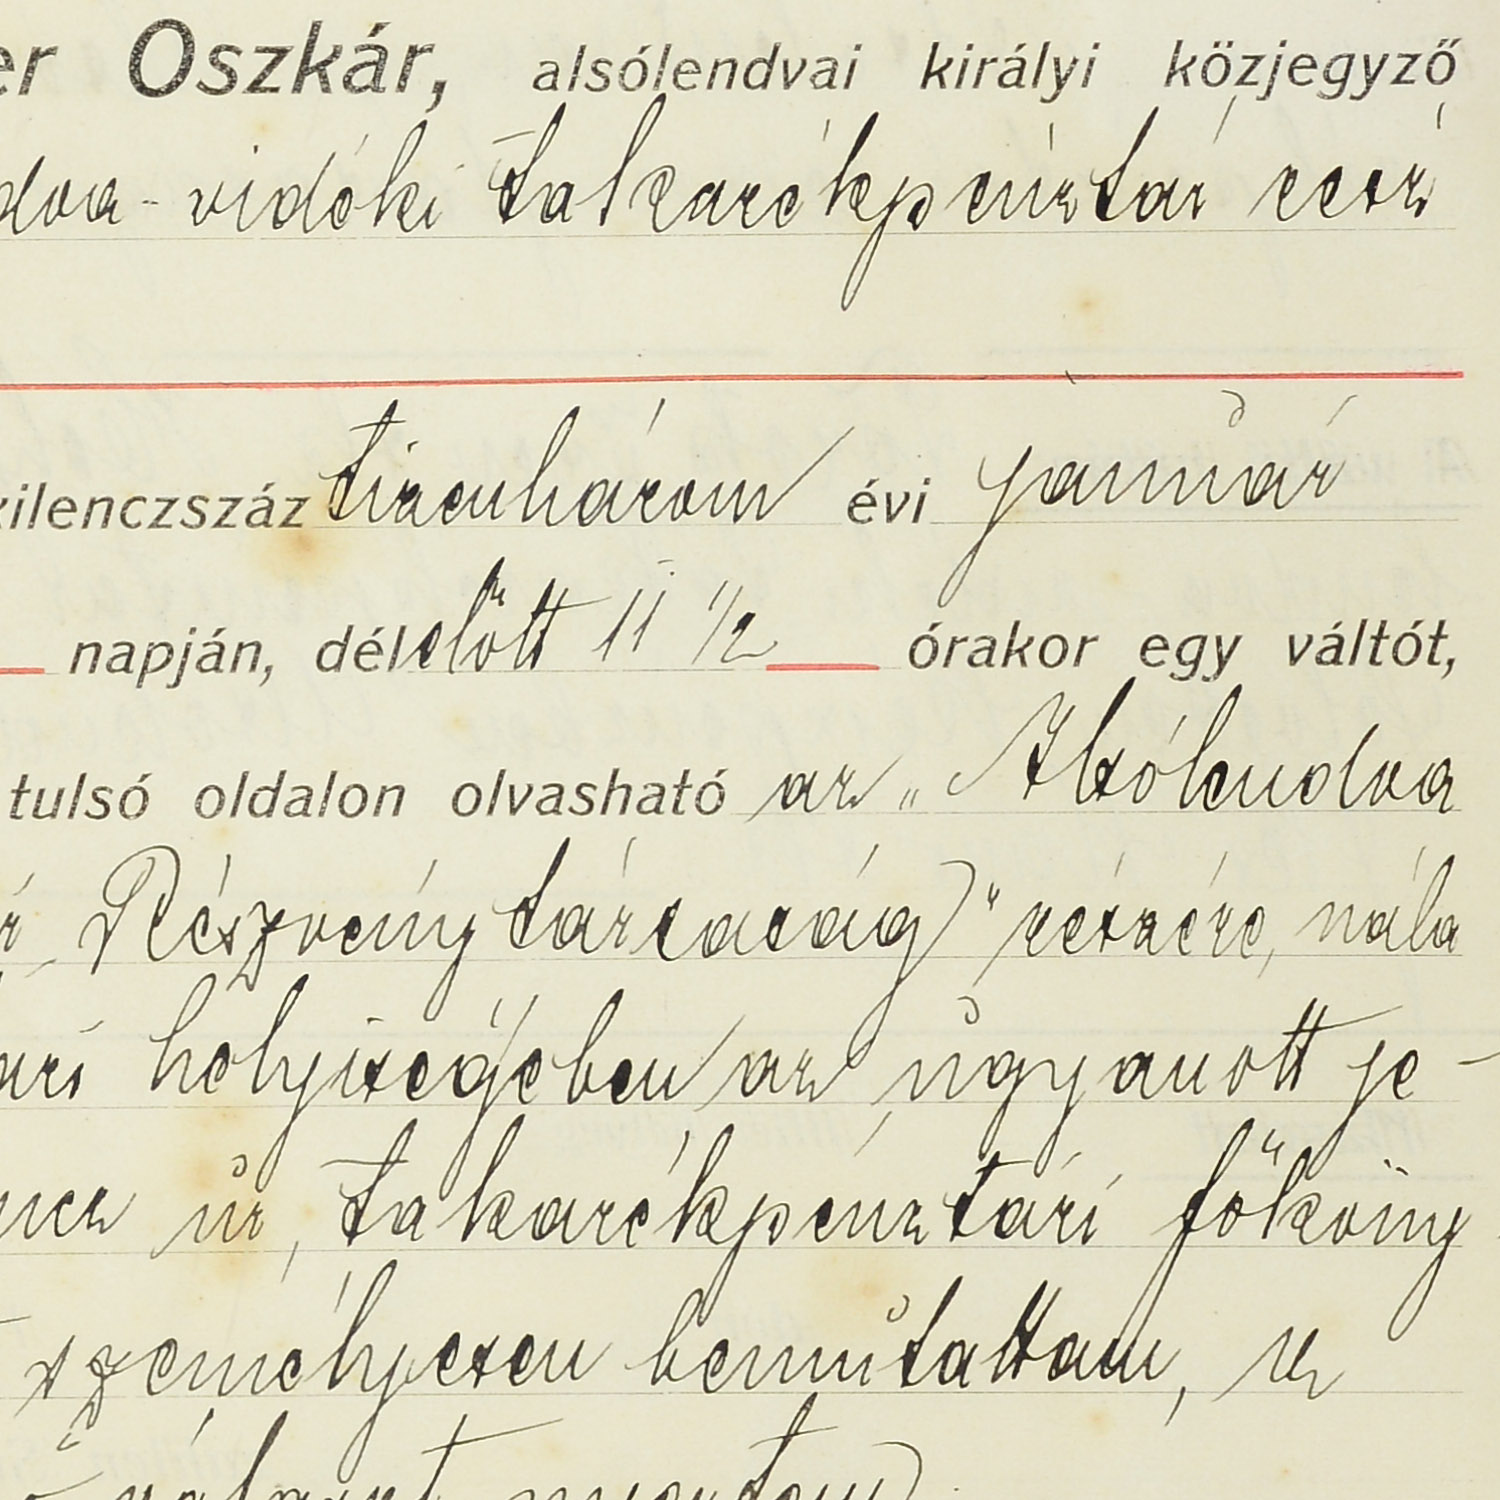 er Oszkár, alsólendvai királyi közjegyző
dva-vidéki takarékpénztár rész
kilenczszáz tizenhárom évi január
napján, délelőtt 11 1/2 órakor egy váltót,
tulsó oldalon olvasható az „Alsólendva
r Részvénytársaság)" részére, nála
ári helyiségében az ugyanott je-
ncz úr, takarékpénztári főköny-
személyesen bemutattam, s
választ nyertem